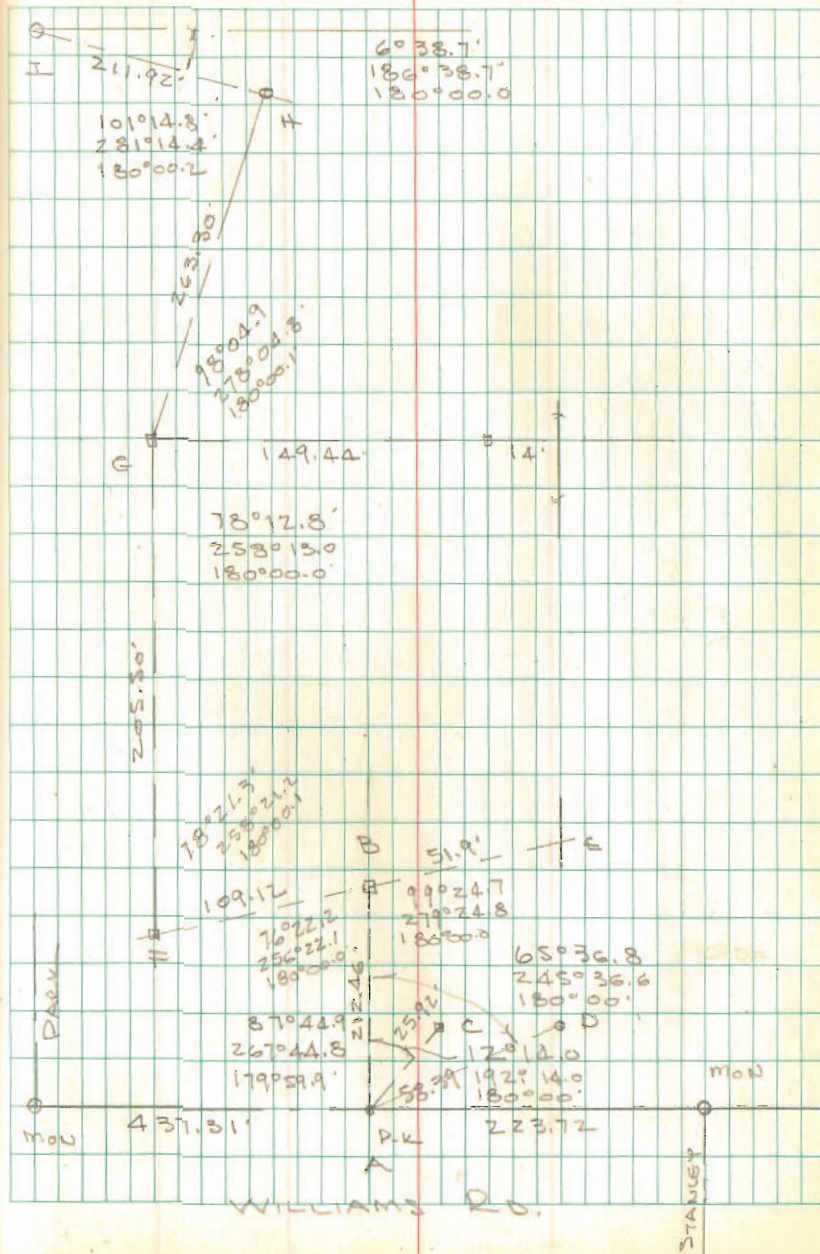 6°38.7'
186°38.7'
180°00.0
I
211.92'
H
101°14.3'
281°14.4'
180°00.2
263.30
98°04.9
278°04.8'
180°00.1'
G
149.44
14'
78°12.8'
258°13.0
180°00.0'
205.50'
78°21.3'
258°21.2
180°00.1
B
51.9'
E
109.12
99°24.7
279°24.8
180°00.0
76°22.2
256°22.1
180°00.0
65°36.8
245°36.6
180°00'
212.46'
25.92'
C
D
87°44.9
267°44.8
179°59.9'
12°14.0
192°14.0
180°00'
58.39
PARK
MON
MON
437.31'
P.K
223.72
A
WILLIAMS RD.
STANLEY